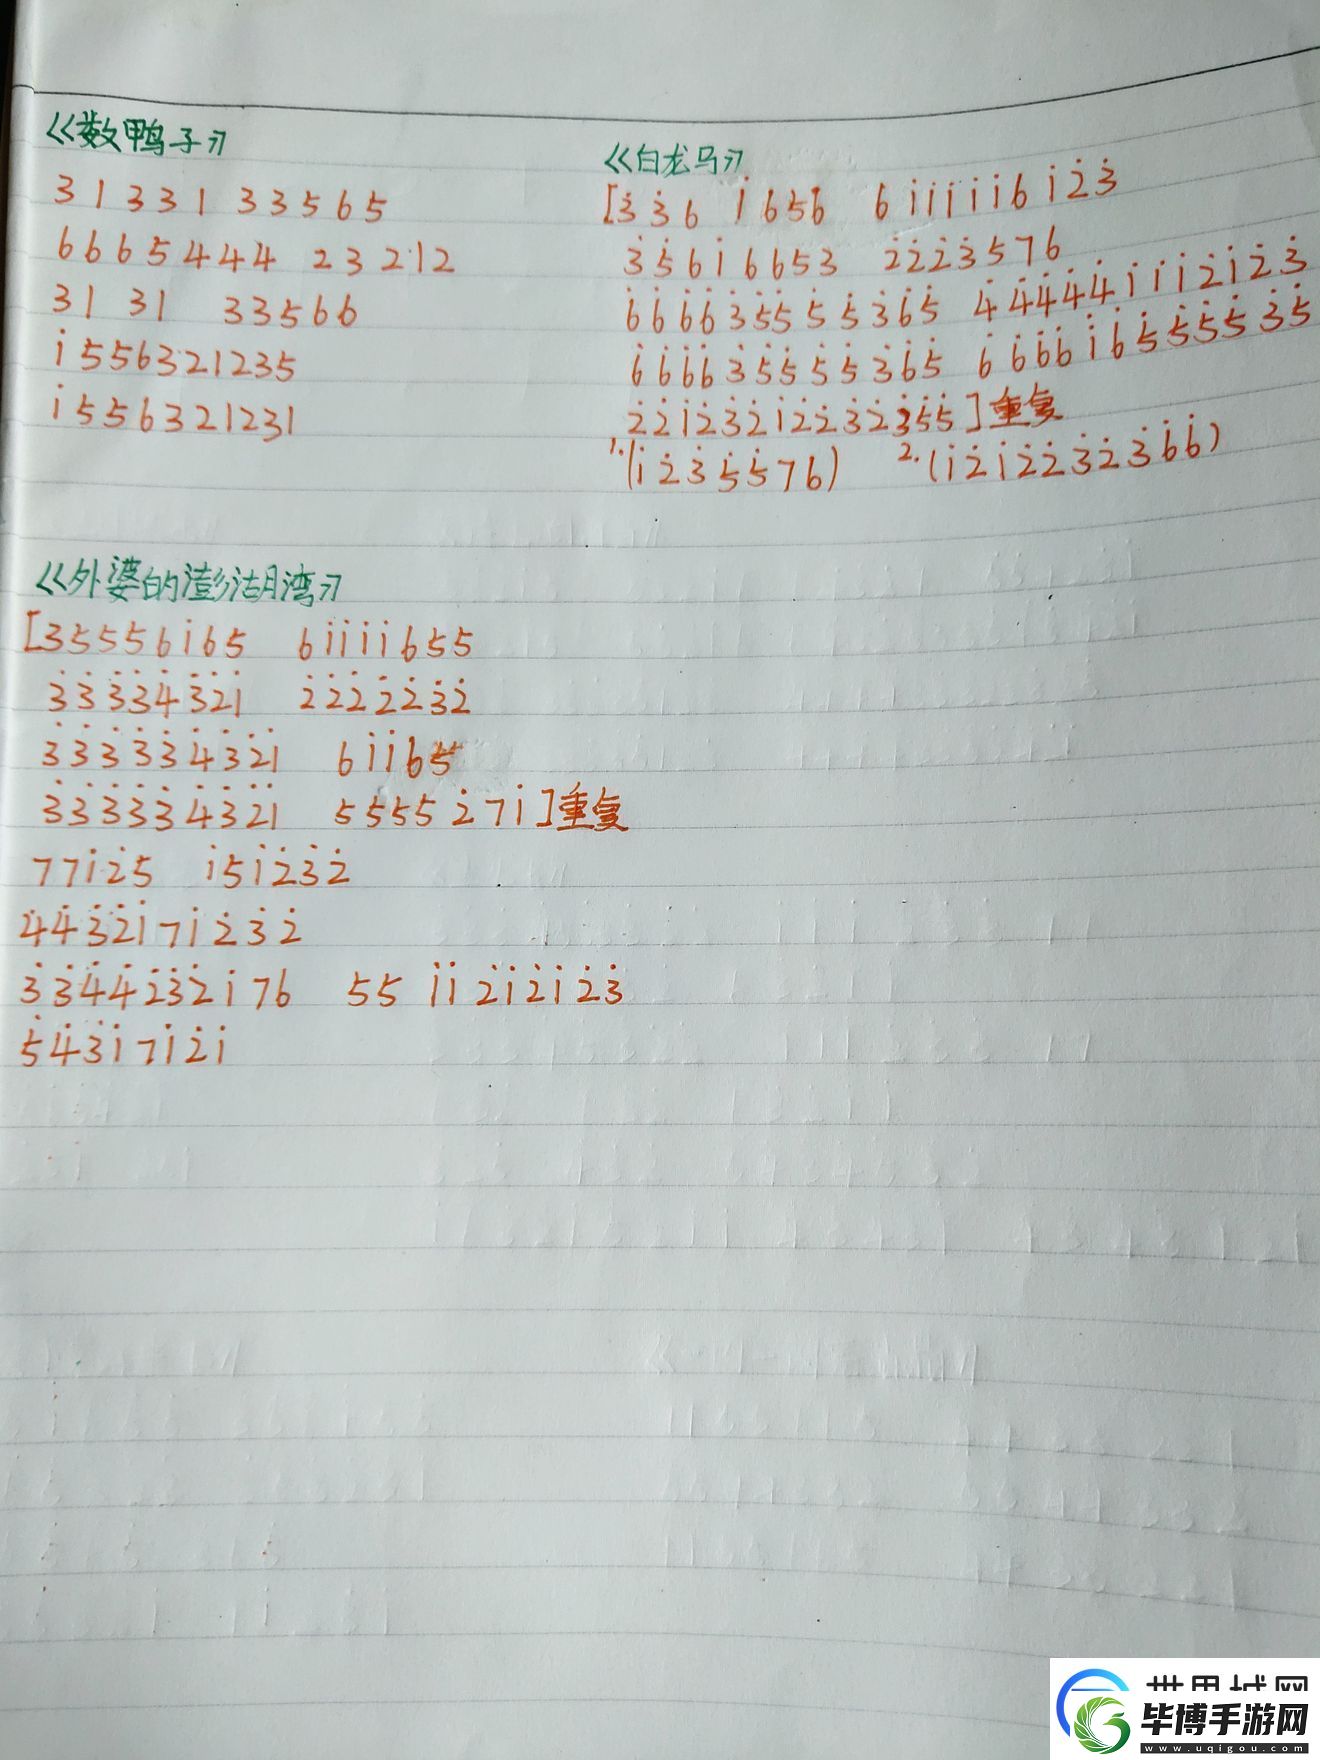 《数鸭子》
3 1 3 3 1 3 3 5 6 5
6 6 6 5 4 4 4 2 3 2 1 2
3 1 3 1 3 3 5 6 6
i̇ 5 5 6 3 2 1 2 3 5
i̇ 5 5 6 3 2 1 2 3 1
《白龙马》
[3̇ 3̇ 6 1̇ 6 5 6 6 1̇ 1̇ 1̇ 1̇ 1̇ 6 1̇ 2̇ 3̇
3̇ 5̇ 6 1̇ 6 6 5 3 2̇ 2̇ 2̇ 3̇ 5 7 6
6̇ 6̇ 6̇ 6̇ 3̇ 5̇ 5̇ 5̇ 5̇ 3̇ 6̇ 5̇ 4̇ 4̇ 4̇ 4̇ 4̇ 1̇ 1̇ 1̇ 2̇ 1̇ 2̇ 3̇
6̇ 6̇ 6̇ 6̇ 3̇ 5̇ 5̇ 5̇ 5̇ 3̇ 6̇ 5̇ 6̇ 6̇ 6̇ 6̇ 1̇ 6̇ 5̇ 5̇ 5̇ 5̇ 3̇ 5̇
2̇ 2̇ 1̇ 2̇ 3̇ 2̇ 1̇ 2̇ 2̇ 3̇ 2̇ 3̇ 5̇ 5̇ ] 重复
1. (1̇ 2̇ 3̇ 5̇ 5̇ 7 6) 2. (1̇ 2̇ 1̇ 2̇ 2̇ 3̇ 2̇ 3̇ 6̇ 6̇)
《外婆的澎湖湾》
[3 5 5 5 6 1̇ 6 5 6 1̇ 1̇ 1̇ 1̇ 6 5 5
3̇ 3̇ 3̇ 3̇ 4̇ 3̇ 2̇ 1̇ 2̇ 2̇ 2̇ 2̇ 2̇ 3̇ 2̇
3̇ 3̇ 3̇ 3̇ 3̇ 4̇ 3̇ 2̇ 1̇ 6 1̇ 1̇ 6 5
3̇ 3̇ 3̇ 3̇ 3̇ 4̇ 3̇ 2̇ 1̇ 5 5 5 5 2̇ 7 1̇ ] 重复
7 7 1̇ 2̇ 5 1̇ 5 1̇ 2̇ 3̇ 2̇
4̇ 4̇ 3̇ 2̇ 1̇ 7 1̇ 2̇ 3̇ 2̇
3̇ 3̇ 4̇ 4̇ 2̇ 3̇ 2̇ 1̇ 7 6 5 5 1̇ 1̇ 2̇ 1̇ 2̇ 1̇ 2̇ 3̇
5̇ 4̇ 3̇ 1̇ 7 1̇ 2̇ 1̇
毕博手游网
www.uqigou.com